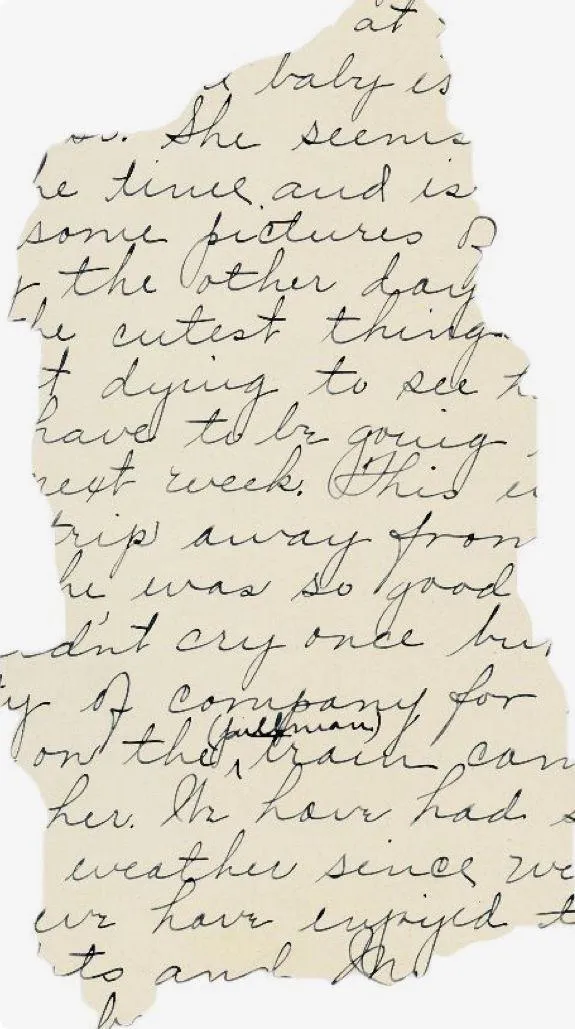 at
baby is
She seems
he time and is
some pictures
the other day
the cutest thing
t dying to see
have to be going
next week. This
trip away from
he was so good
dn't cry once bu
ty of company for
(pullman)
on the train can
her. We have had s
weather since we
we have enjoyed t
ts and